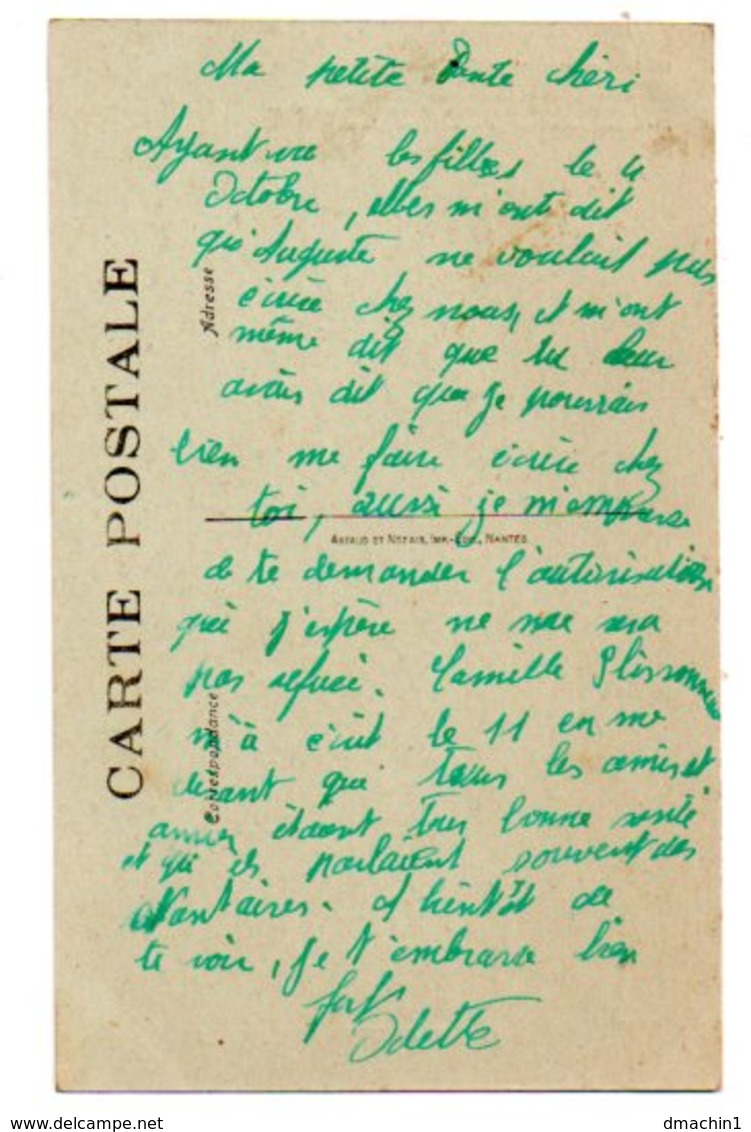 Ma petite Tante chéri
Ayant vu les filles le 4
Octobre, elles m'ont dit
qu'Auguste ne voulait pas
écrire chez nous, et m'ont
même dit que tu leur
avais dit que je pourrais
bien me faire écrire chez
toi, aussi je m'empresse
de te demander l'autorisation
que j'espère ne me sera
pas refusé. Camille Plissonneau
m'a écrit le 11 en me
disant que tous les amis et
amies étaient tous bonne santé
et qu'ils parlaient souvent des
Nantaises. A bientôt de
te voir, je t'embrasse bien
fort
Odette
CARTE POSTALE
Adresse
Correspondance
ARTAUD ET NOZAIS, IMP.-ÉDIT., NANTES
delcampe.net
dmachin1